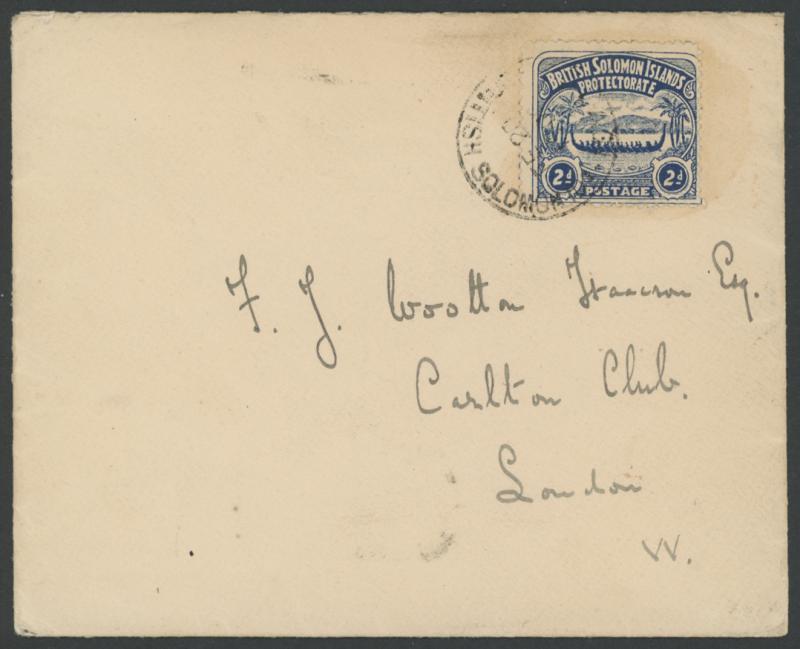 BRITISH SOLOMON ISLANDS
PROTECTORATE
2d POSTAGE 2d
BRITISH SOLOMON
F. J. Wootton Isaacson Esq.
Carlton Club.
London
W.